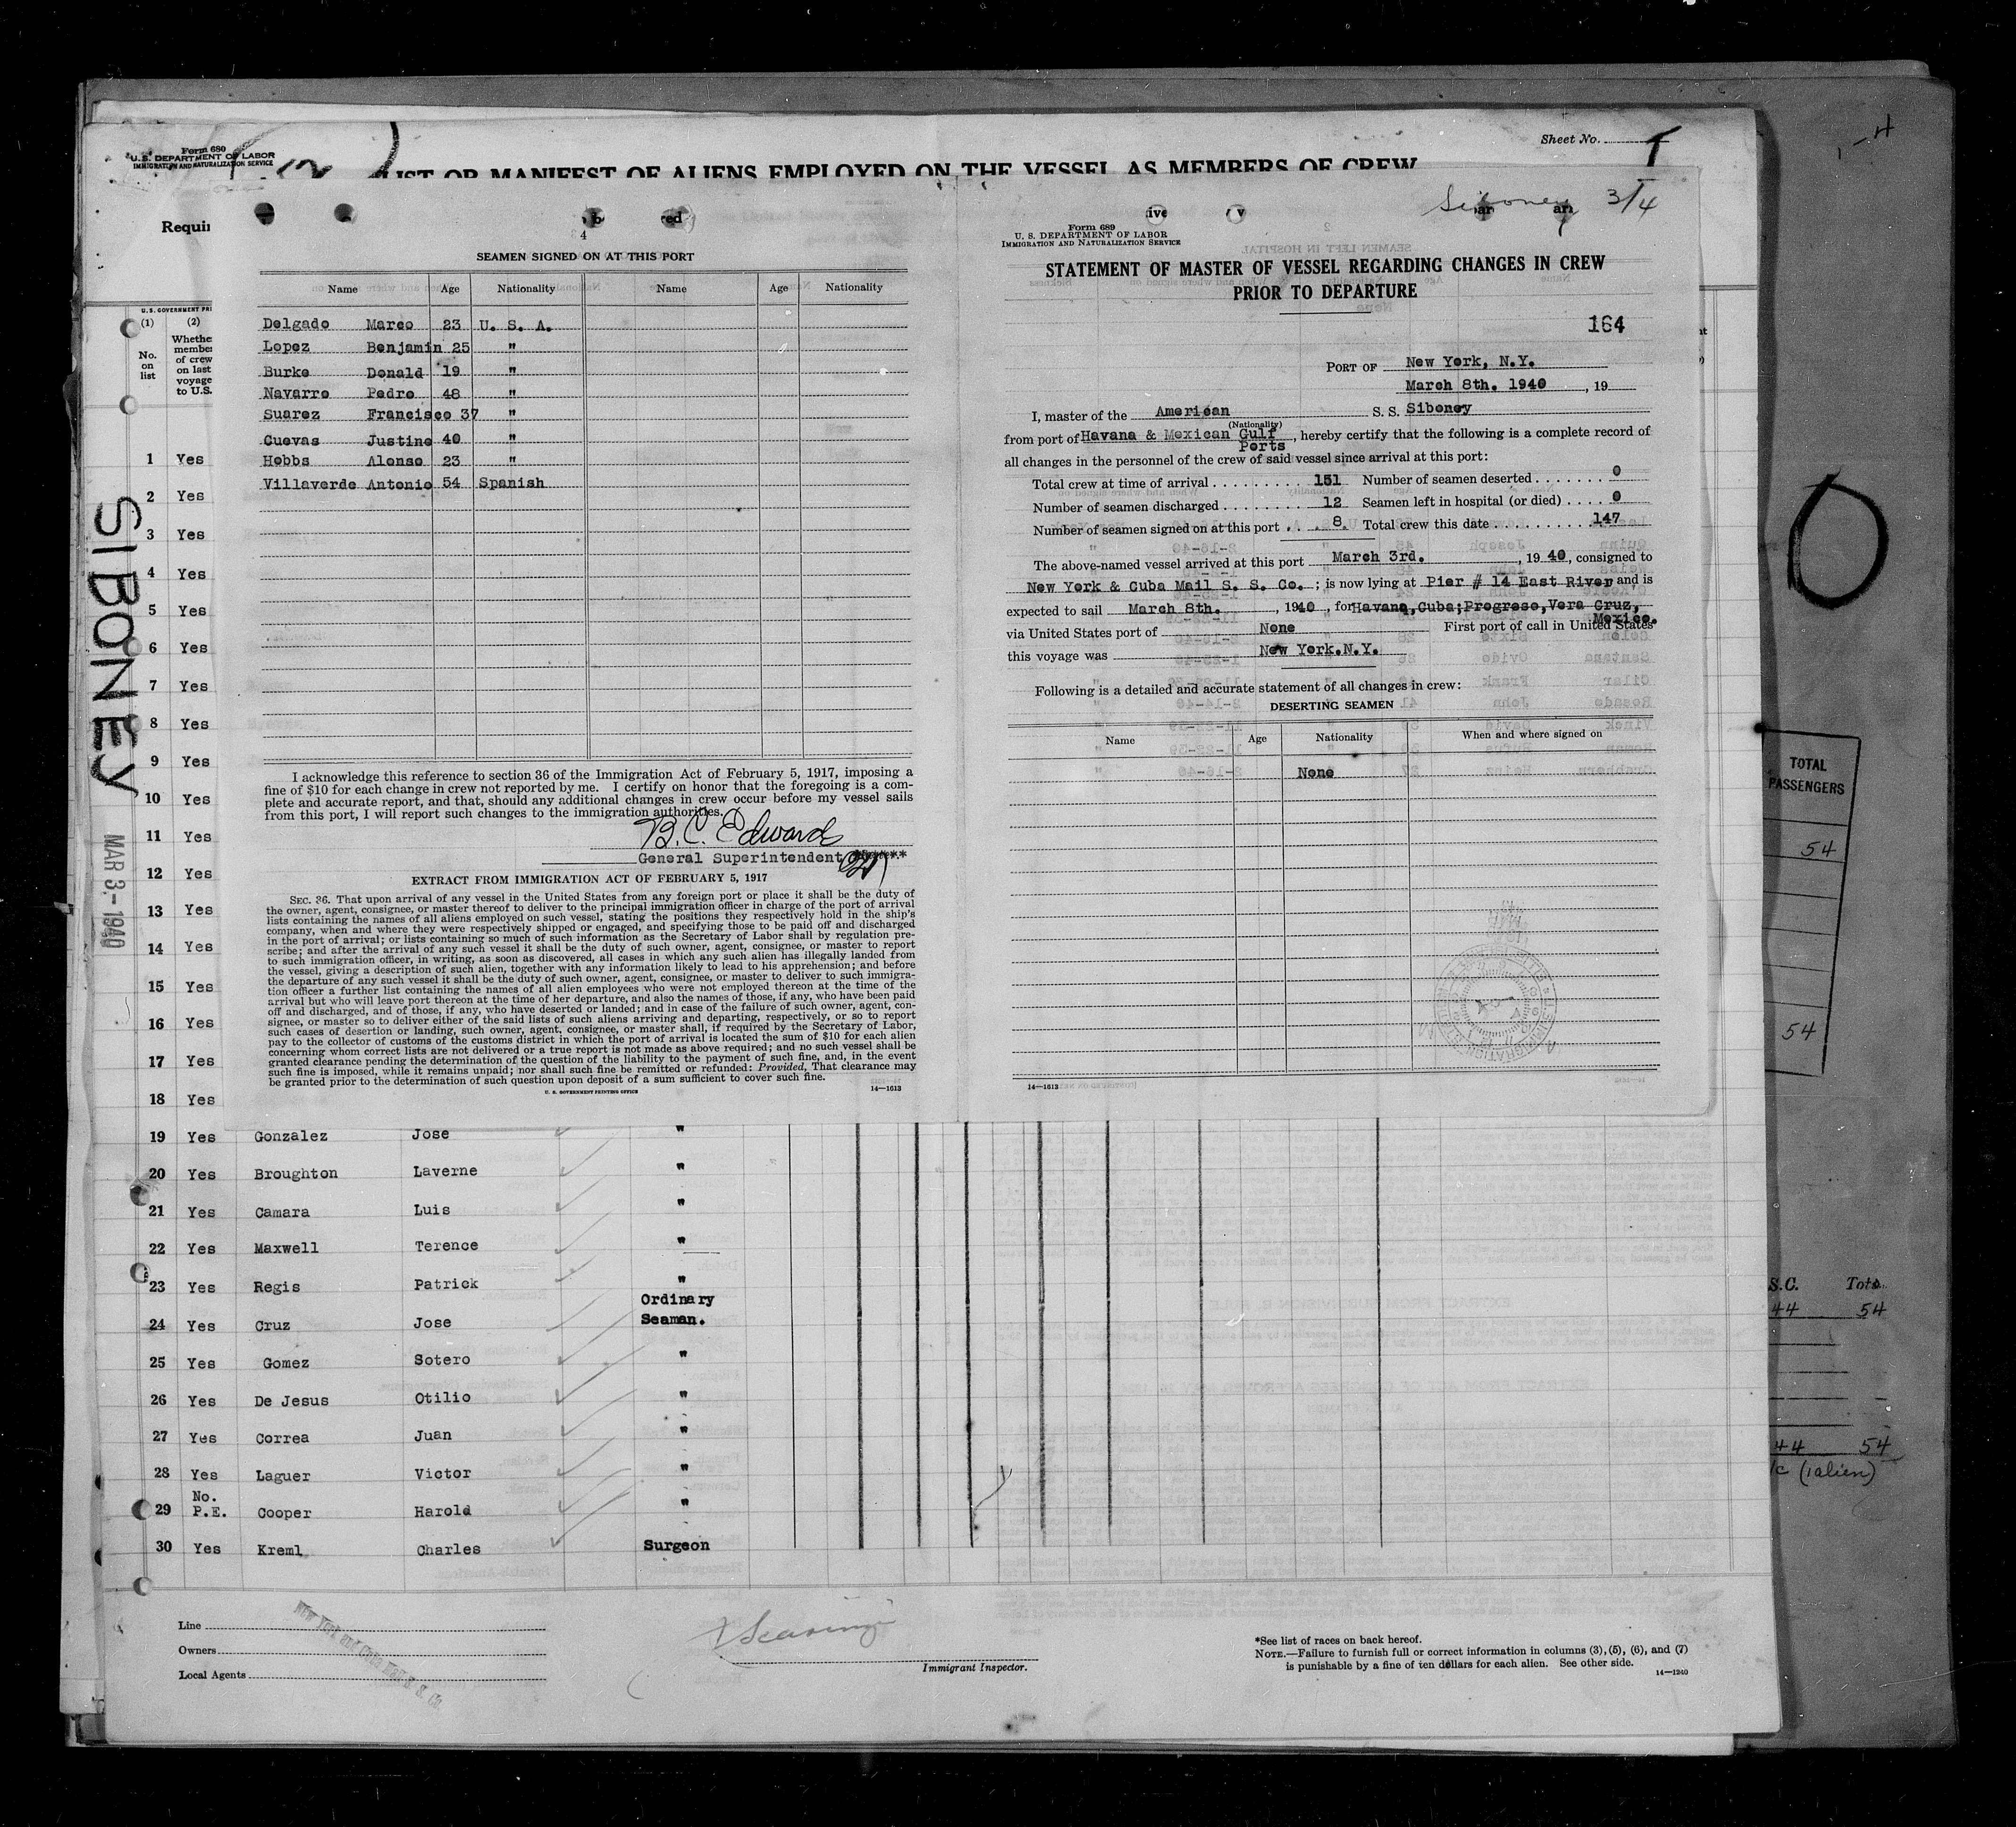 Form 680
U. S. DEPARTMENT OF LABOR
IMMIGRATION AND NATURALIZATION SERVICE
Sheet No. 1
LIST OR MANIFEST OF ALIENS EMPLOYED ON THE VESSEL AS MEMBERS OF CREW
4
SEAMEN SIGNED ON AT THIS PORT
Name Age Nationality Name Age Nationality
Delgado Marco 23 U. S. A.
Lopez Benjamin 25 "
Burke Donald 19 "
Navarro Pedro 48 "
Suarez Francisco 37 "
Cuevas Justino 40 "
Hobbs Alonso 23 "
Villaverde Antonio 54 Spanish
I acknowledge this reference to section 36 of the Immigration Act of February 5, 1917, imposing a
fine of $10 for each change in crew not reported by me. I certify on honor that the foregoing is a com-
plete and accurate report, and that, should any additional changes in crew occur before my vessel sails
from this port, I will report such changes to the immigration authorities.
B. C. Edwards
General Superintendent
EXTRACT FROM IMMIGRATION ACT OF FEBRUARY 5, 1917
SEC. 36. That upon arrival of any vessel in the United States from any foreign port or place it shall be the duty of
the owner, agent, consignee, or master thereof to deliver to the principal immigration officer in charge of the port of arrival
lists containing the names of all aliens employed on such vessel, stating the positions they respectively hold in the ship's
company, when and where they were respectively shipped or engaged, and specifying those to be paid off and discharged
in the port of arrival; or lists containing so much of such information as the Secretary of Labor shall by regulation pre-
scribe; and after the arrival of any such vessel it shall be the duty of such owner, agent, consignee, or master to report
to such immigration officer, in writing, as soon as discovered, all cases in which any such alien has illegally landed from
the vessel, giving a description of such alien, together with any information likely to lead to his apprehension; and before
the departure of any such vessel it shall be the duty of such owner, agent, consignee, or master to deliver to such immigra-
tion officer a further list containing the names of all alien employees who were not employed thereon at the time of the
arrival but who will leave port thereon at the time of her departure, and also the names of those, if any, who have been paid
off and discharged, and of those, if any, who have deserted or landed; and in case of the failure of such owner, agent, con-
signee, or master so to deliver either of the said lists of such aliens arriving and departing, respectively, or so to report
such cases of desertion or landing, such owner, agent, consignee, or master shall, if required by the Secretary of Labor,
pay to the collector of customs of the customs district in which the port of arrival is located the sum of $10 for each alien
concerning whom correct lists are not delivered or a true report is not made as above required; and no such vessel shall be
granted clearance pending the determination of the question of the liability to the payment of such fine, and, in the event
such fine is imposed, while it remains unpaid; nor shall such fine be remitted or refunded: Provided, That clearance may
be granted prior to the determination of such question upon deposit of a sum sufficient to cover such fine.
U. S. GOVERNMENT PRINTING OFFICE 14—1613
Siboney 3/4
Form 689
U. S. DEPARTMENT OF LABOR
IMMIGRATION AND NATURALIZATION SERVICE
STATEMENT OF MASTER OF VESSEL REGARDING CHANGES IN CREW
PRIOR TO DEPARTURE
164
PORT OF New York, N.Y.
March 8th. 1940, 19
I, master of the American S. S. Siboney
(Nationality)
from port of Havana & Mexican Gulf Ports, hereby certify that the following is a complete record of
all changes in the personnel of the crew of said vessel since arrival at this port:
Total crew at time of arrival 151 Number of seamen deserted 0
Number of seamen discharged 12 Seamen left in hospital (or died) 0
Number of seamen signed on at this port 8. Total crew this date 147
The above-named vessel arrived at this port March 3rd., 1940, consigned to
New York & Cuba Mail S. S. Co.; is now lying at Pier # 14 East River and is
expected to sail March 8th., 1940, for Havana, Cuba; Progreso, Vera Cruz, Mexico.
via United States port of None First port of call in United States
this voyage was New York.N.Y.
Following is a detailed and accurate statement of all changes in crew:
DESERTING SEAMEN
Name Age Nationality When and where signed on
None
14—1613
Requi
U. S. GOVERNMENT PRI
(1) (2)
No. on list
Whether member of crew on last voyage to U.S.
SIBONEY
MAR 3 - 1940
1 Yes
2 Yes
3 Yes
4 Yes
5 Yes
6 Yes
7 Yes
8 Yes
9 Yes
10 Yes
11 Yes
12 Yes
13 Yes
14 Yes
15 Yes
16 Yes
17 Yes
18 Yes
19 Yes Gonzalez Jose "
20 Yes Broughton Laverne "
21 Yes Camara Luis "
22 Yes Maxwell Terence "
23 Yes Regis Patrick "
24 Yes Cruz Jose Ordinary Seaman.
25 Yes Gomez Sotero "
26 Yes De Jesus Otilio "
27 Yes Correa Juan "
28 Yes Laguer Victor "
29 No. P.E. Cooper Harold "
30 Yes Kreml Charles Surgeon
Line
Owners
Local Agents
New York and Cuba Mail S. S. Co.
Immigrant Inspector.
*See list of races on back hereof.
NOTE.—Failure to furnish full or correct information in columns (3), (5), (6), and (7)
is punishable by a fine of ten dollars for each alien. See other side.
14—1240
TOTAL
PASSENGERS
54
54
S.C. Tota
44 54
44 54
(1 alien)